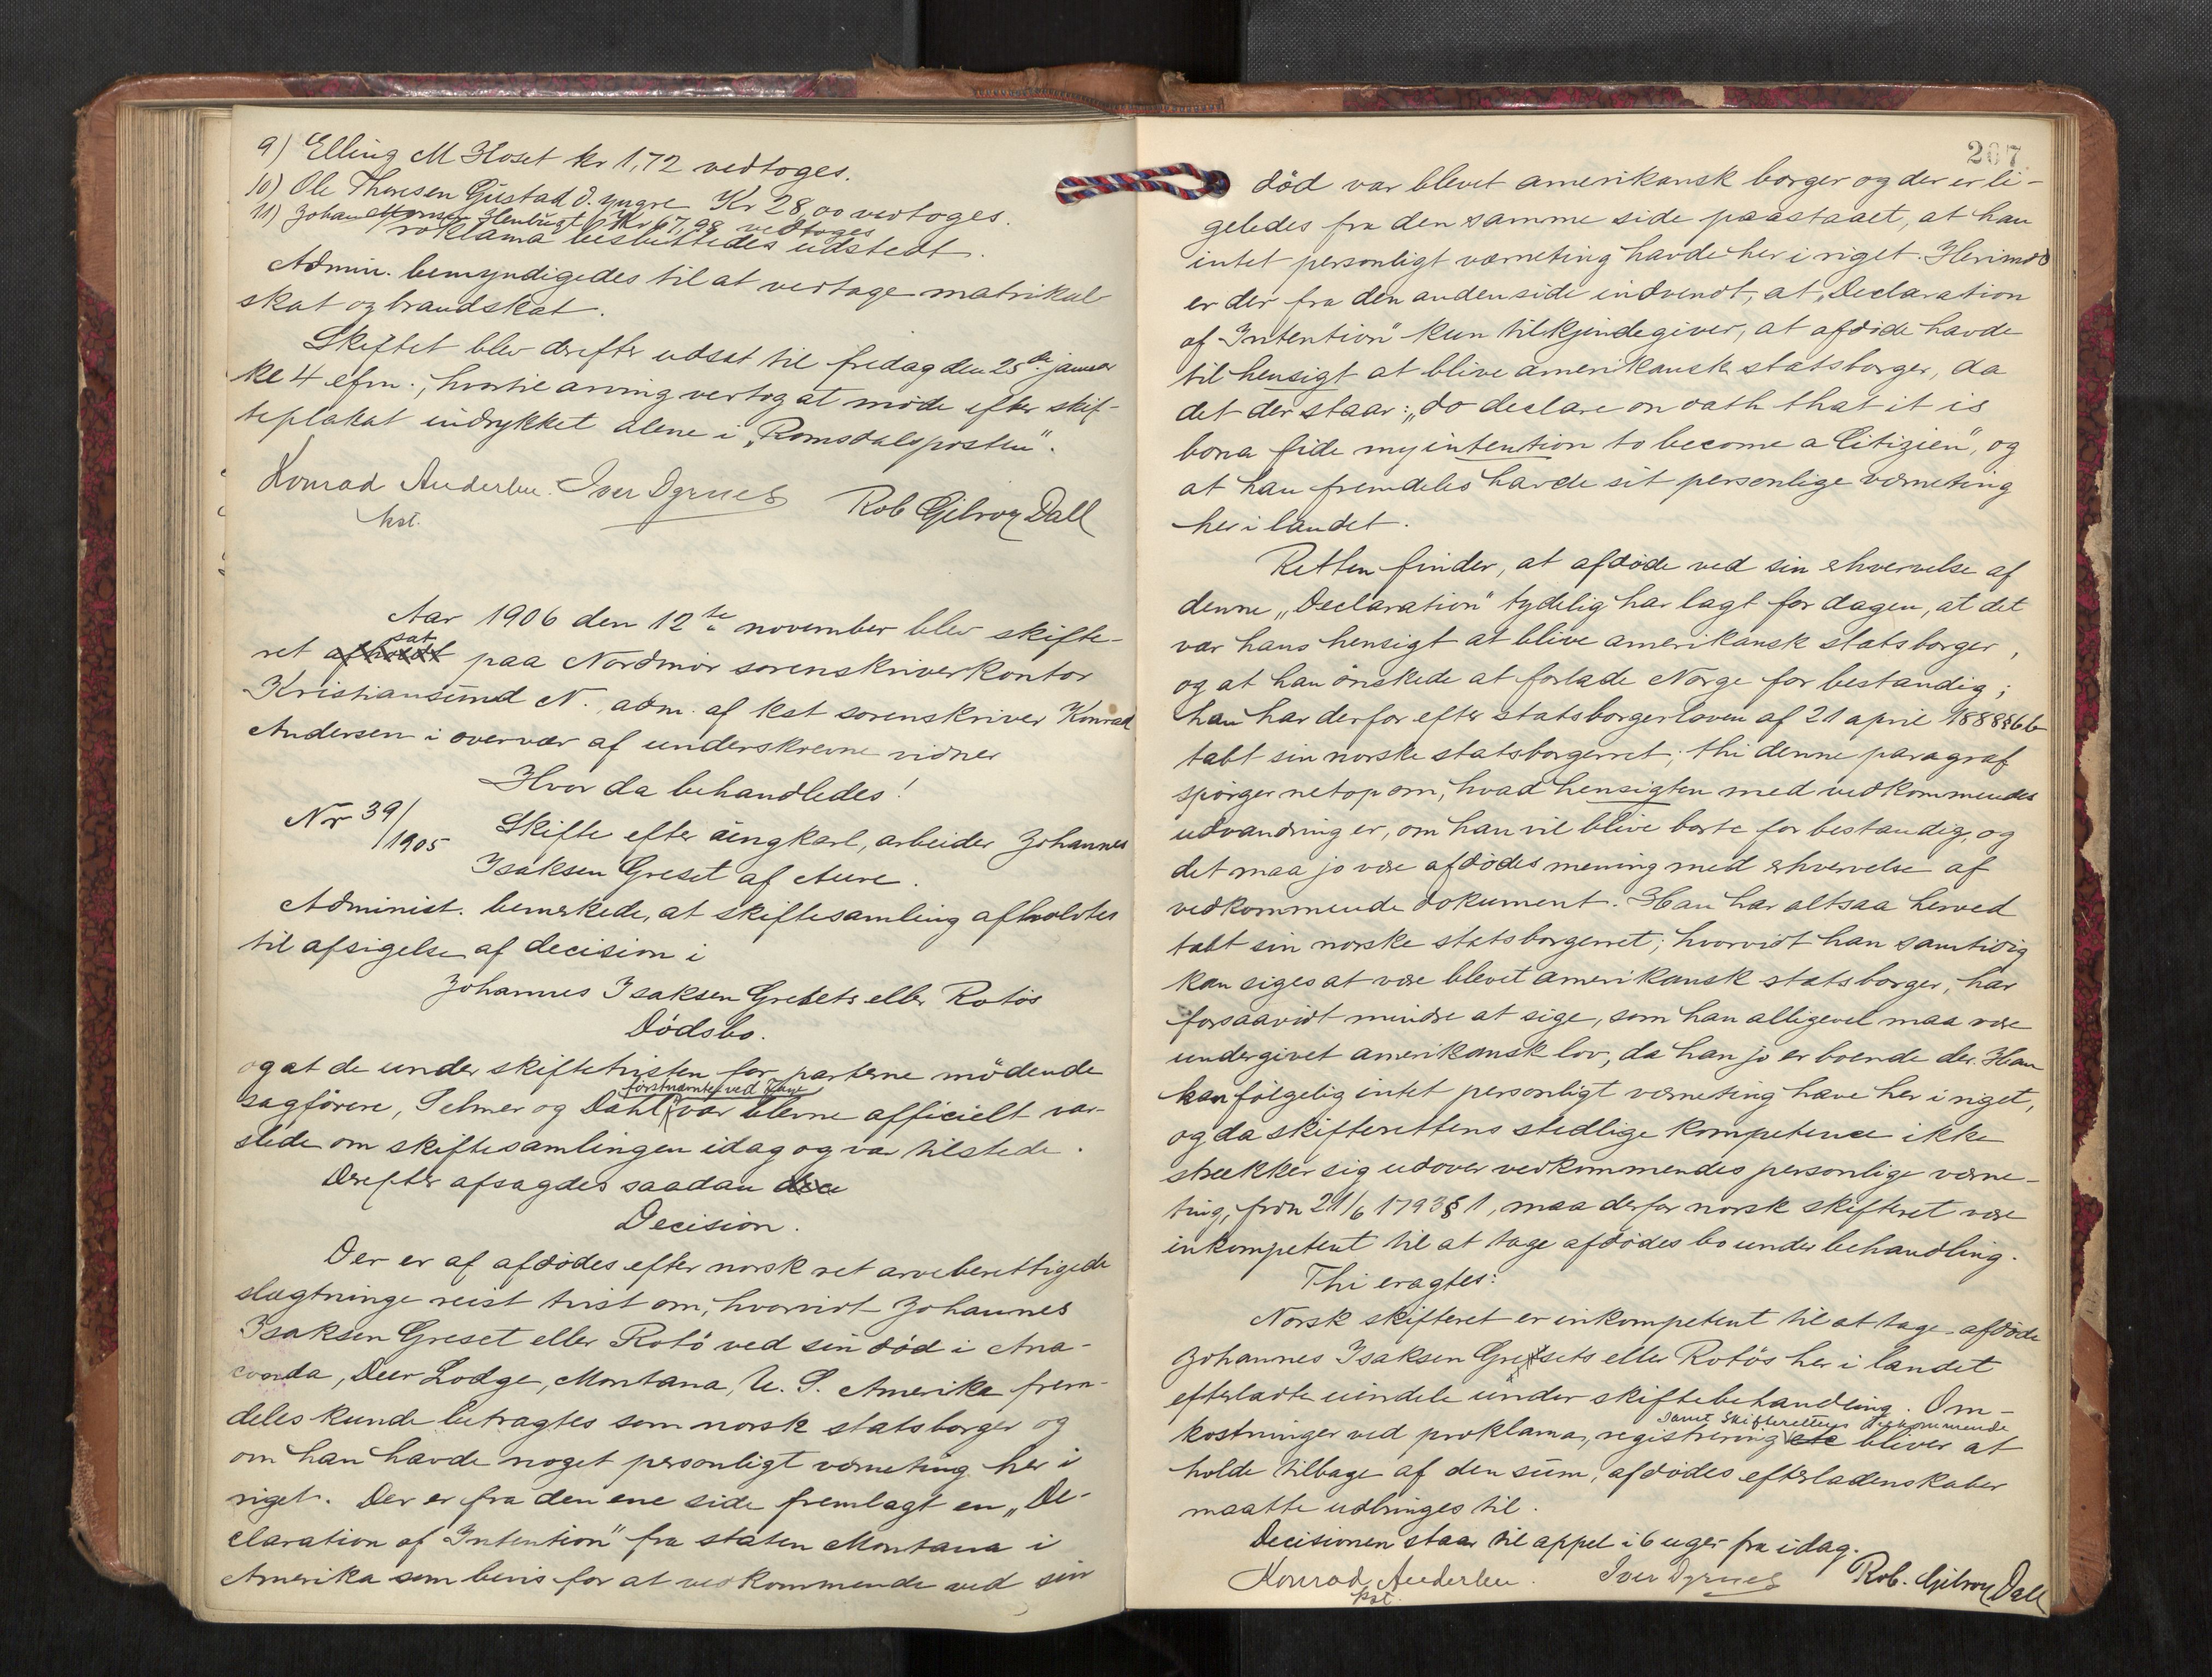 9) Elling M Hoset kr 1,72 vedtoges.
10) Ole Theresen Gustad d. yngre Kr 28,00 vedtoges.
11) Johan Henbugt Kr 67,98 vedtoges
roklama besluttedes udstedt.
Admin. bemyndigedes til at vedtage matrikul
skat og brandskat.
Skiftet blev derefter udsat til fredag den 25de januar
kl 4 efm., hvortil arving vertog at møde efter skif-
teplakat indrykket alene i „Romsdalsposten".
Konrad Andersen. Iver Dyrnes Rob Gilroy Dall
kst.
Aar 1906 den 12te november blev skifte-
ret afholdt sat paa Nordmør sorenskriverkontor
Kristiansund N., adm. af kst sorenskriver Konrad
Andersen i overvær af underskrevne vidner
Hvor da behandledes!
Nr 39/1905 Skifte efter üngkarl, arbeider Johannes
Isaksen Greset af Aure.
Administ. bemerkede, at skiftesamling afholdtes
til afsigelse af decision i
Johannes Isaksen Gresets eller Rotös
Dödsbo.
og at de under skiftetvisten for parterne mödende
førstnævnte ved
sagförere, Selmer og Dahl, var blevne officielt var-
slede om skiftesamlingen idag og var tilstede.
Derefter afsagdes saadan dec
Decision.
Der er af afdødes efter norsk ret arveberettigede
slegtninge reist tvist om, hvorvidt Johannes
Isaksen Greset eller Rotö ved sin död i Ana-
conda, Deer Lodge, Montana, U. S. Amerika frem-
deles kunde betragtes som norsk statsborger og
om han havde noget personligt verneting her i
riget. Der er fra den ene side fremlagt en „De-
claration of Intention" fra staten Montana i
Amerika som bevis for at vedkommende ved sin
207
död var blevet amerikansk borger og der er li-
geledes fra den samme side paastaaet, at han
intet personligt værneting havde her i riget. Herimod
er der fra den anden side indvendt, at „Declaration
of Intention" kun tilkjendegiver, at afdöde havde
til hensigt at blive amerikansk statsborger, da
det der staar: „do declare on oath that it is
bona fide my intention to become a Citizien", og
at han fremdeles havde sit personlige værneting
her i landet.
Retten finder, at afdöde ved sin erhvervelse af
denne „Declaration" tydelig har lagt for dagen, at det
var hans hensigt at blive amerikansk statsborger,
og at han önskede at forlade Norge for bestandig;
han har derfor efter statsborgerloven af 21 april 1888 § 6 b
tabt sin norske statsborgerret; thi denne paragraf
spörger netop om, hvad hensigten med vedkommendes
udvandring er, om han vil blive borte for bestandig, og
det maa jo være afdödes mening med erhvervelse af
vedkommende dokument. Han har altsaa herved
tabt sin norske statsborgerret; hvorvidt han samtidig
kan siges at være blevet amerikansk statsborger, har
forsaavidt mindre at sige, som han alligevel maa være
undergivet amerikansk lov, da han jo er boende der. Han
kan fölgelig intet personligt værneting have her i riget,
og da skifterettens stedlige kompetence ikke
strækker sig udover vedkommendes personlige værne-
ting, frdn 21/6 1793 § 1, maa derfor norsk skifteret være
inkompetent til at tage afdödes bo under behandling.
Thi eragtes:
Norsk skifteret er inkompetent til at tage afdöde
Johannes Isaksen Gresets eller Rotös her i landet
efterladte eiendele under skiftebehandling. Om-
samt skifterettens tilkommende
kostninger ved proklama, registrering etc bliver at
holde tilbage af den sum, afdödes efterladenskaber
maatte udbringes til.
Decisionen staar til appel i 6 uger fra idag.
Konrad Andersen. Iver Dyrnes Rob. Gilroy Dall
kst.